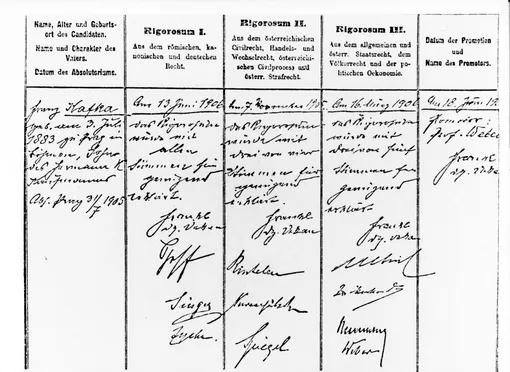 Name, Alter und Geburts-
ort des Candidaten.
Name und Charakter des
Vaters.
Datum des Absolutoriums.
Franz Kafka
geb. am 3. Juli
1883 zu Prag in
Böhmen, Sohn
des Hermann K
Kaufmannes
Abs. Prag
Rigorosum I.
Aus dem römischen, ka-
nonischen und deutschen
Recht.
Am 13 Juni 1906
das Rigorosum
wurde mit
allen
Stimmen für
genügend
erklärt.
Frankl
dz. Dekan
Singer
Rigorosum II.
Aus dem österreichischen
Civilrecht, Handels- und
Wechselrecht, österreichi-
schen Civilprocess und
österr. Strafrecht.
Am 7. November 1905
das Rigorosum
wurde mit
drei von vier
Stimmen für
genügend
erklärt.
Frankl
dz. Dekan
Rintelen
Spiegel
Rigorosum III.
Aus dem allgemeinen und
österr. Staatsrecht, dem
Völkerrecht und der po-
litischen Oekonomie.
Am 16 März 1906
das Rigorosum
wurde mit
drei von fünf
Stimmen für
genügend
erklärt.
Frankl
dz. Dekan
Weber
Datum der Promotion
und
Name des Promotors.
Am 18. Juni 19
Promotor:
Prof. Weber
Frankl
dz. Dekan